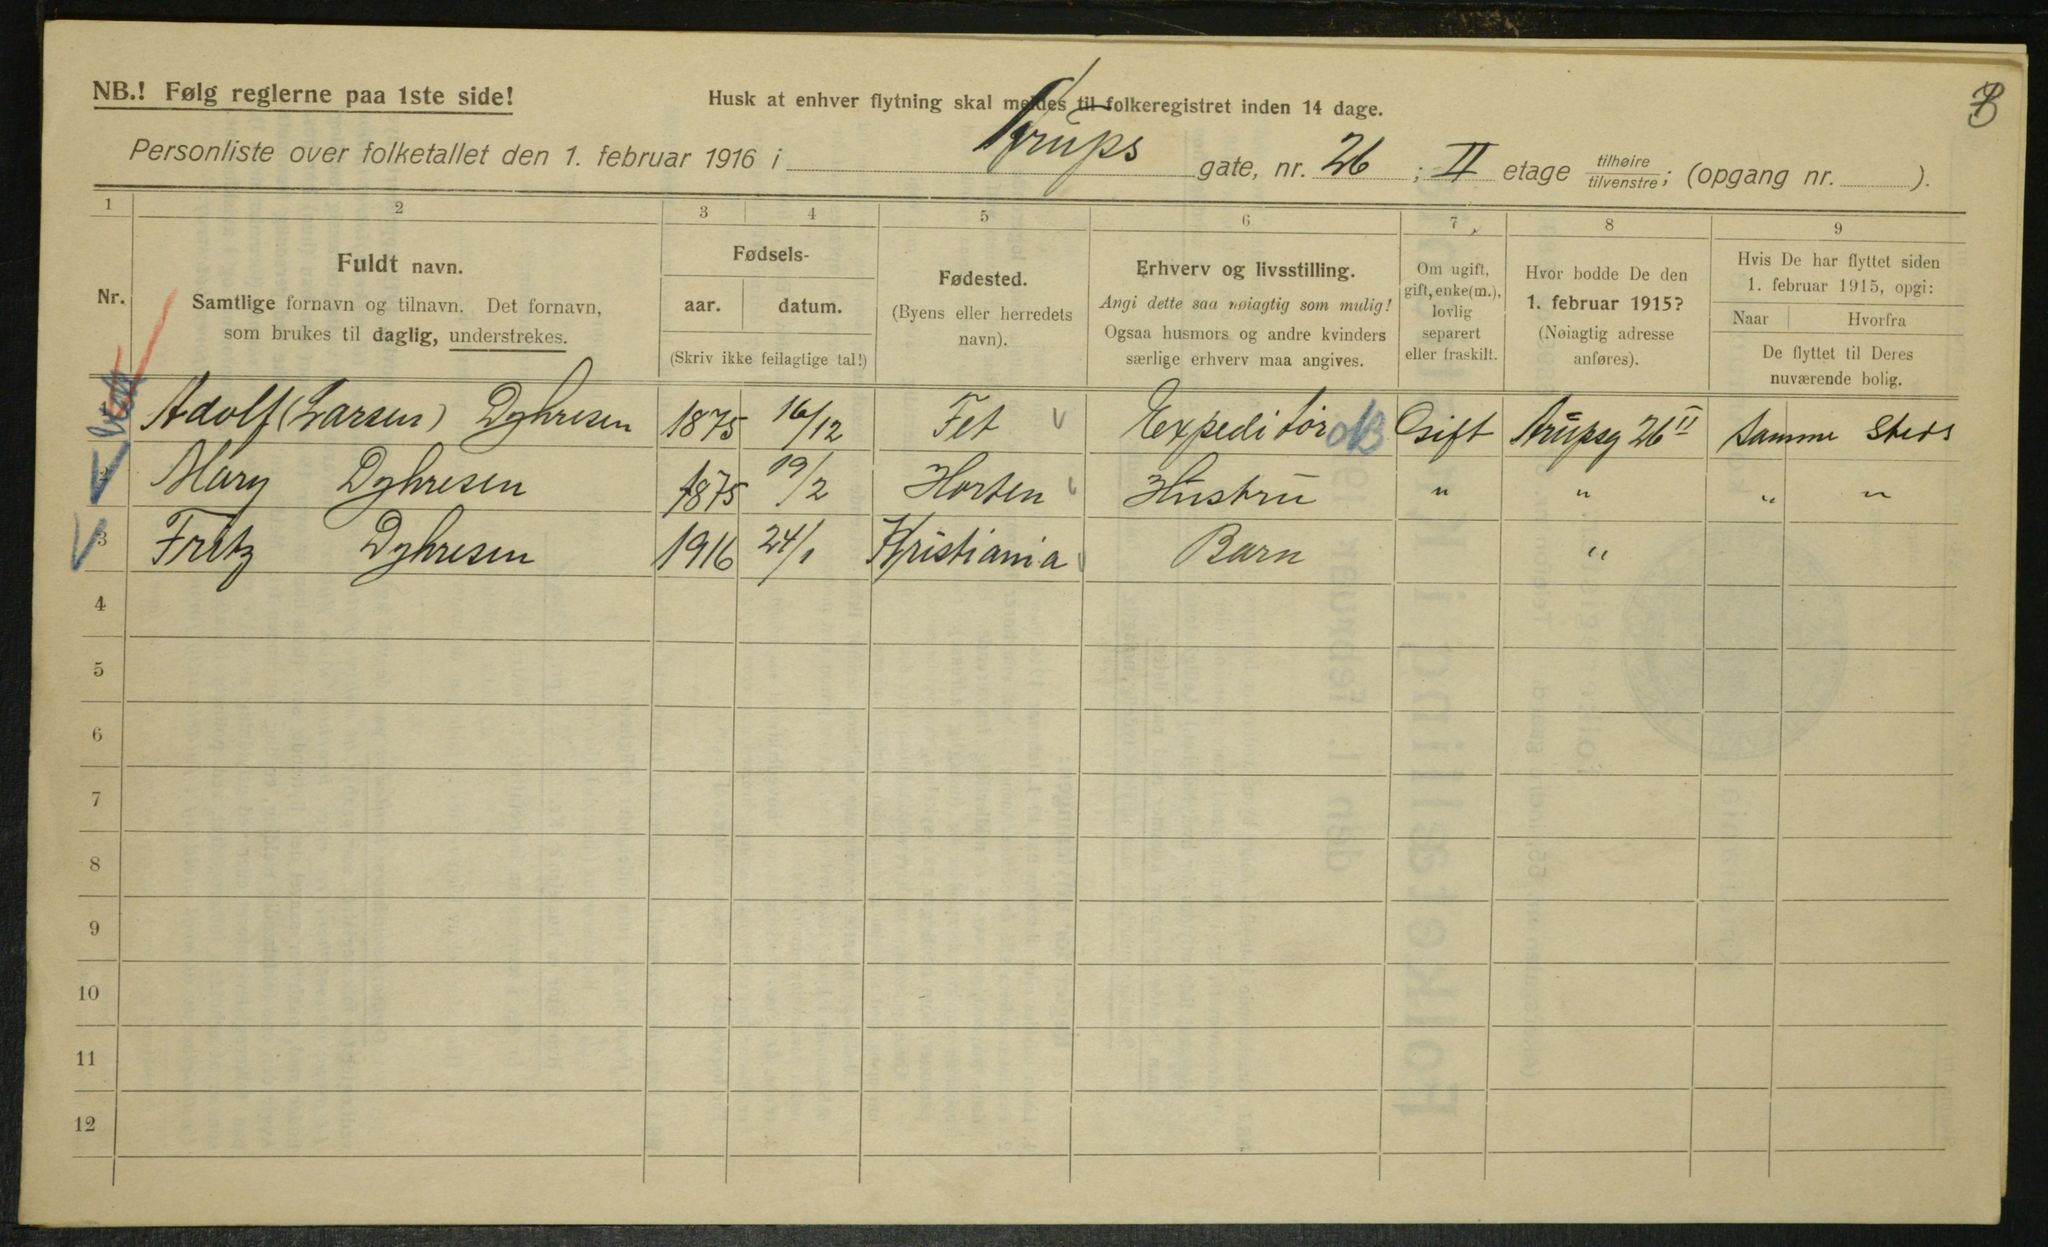 NB.! Følg reglerne paa 1ste side!
Husk at enhver flytning skal meldes til folkeregistret inden 14 dage.
Personliste over folketallet den 1. februar 1916 i Arups gate, nr. 26 ; II etage tilhøire / tilvenstre; (opgang nr. ).
1 2 3 4 5 6 7 8 9
Nr.
Fuldt navn.
Samtlige fornavn og tilnavn. Det fornavn,
som brukes til daglig, understrekes.
Fødsels-
aar. datum.
(Skriv ikke feilagtige tal!)
Fødested.
(Byens eller herredets
navn).
Erhverv og livsstilling.
Angi dette saa nøiagtig som mulig!
Ogsaa husmors og andre kvinders
særlige erhverv maa angives.
Om ugift,
gift, enke(m.),
lovlig
separert
eller fraskilt.
Hvor bodde De den
1. februar 1915?
(Nøiagtig adresse
anføres).
Hvis De har flyttet siden
1. februar 1915, opgi:
Naar Hvorfra
De flyttet til Deres
nuværende bolig.
Adolf (Larsen) Dyhresen 1875 16/12 Fet Expeditør Gift Arupsg 26 II Samme Sted
2 Mary Dyhresen 1875 19/2 Horten Hustru " " " "
3 Fritz Dyhresen 1916 24/1 Kristiania Barn "
4
5
6
7
8
9
10
11
12